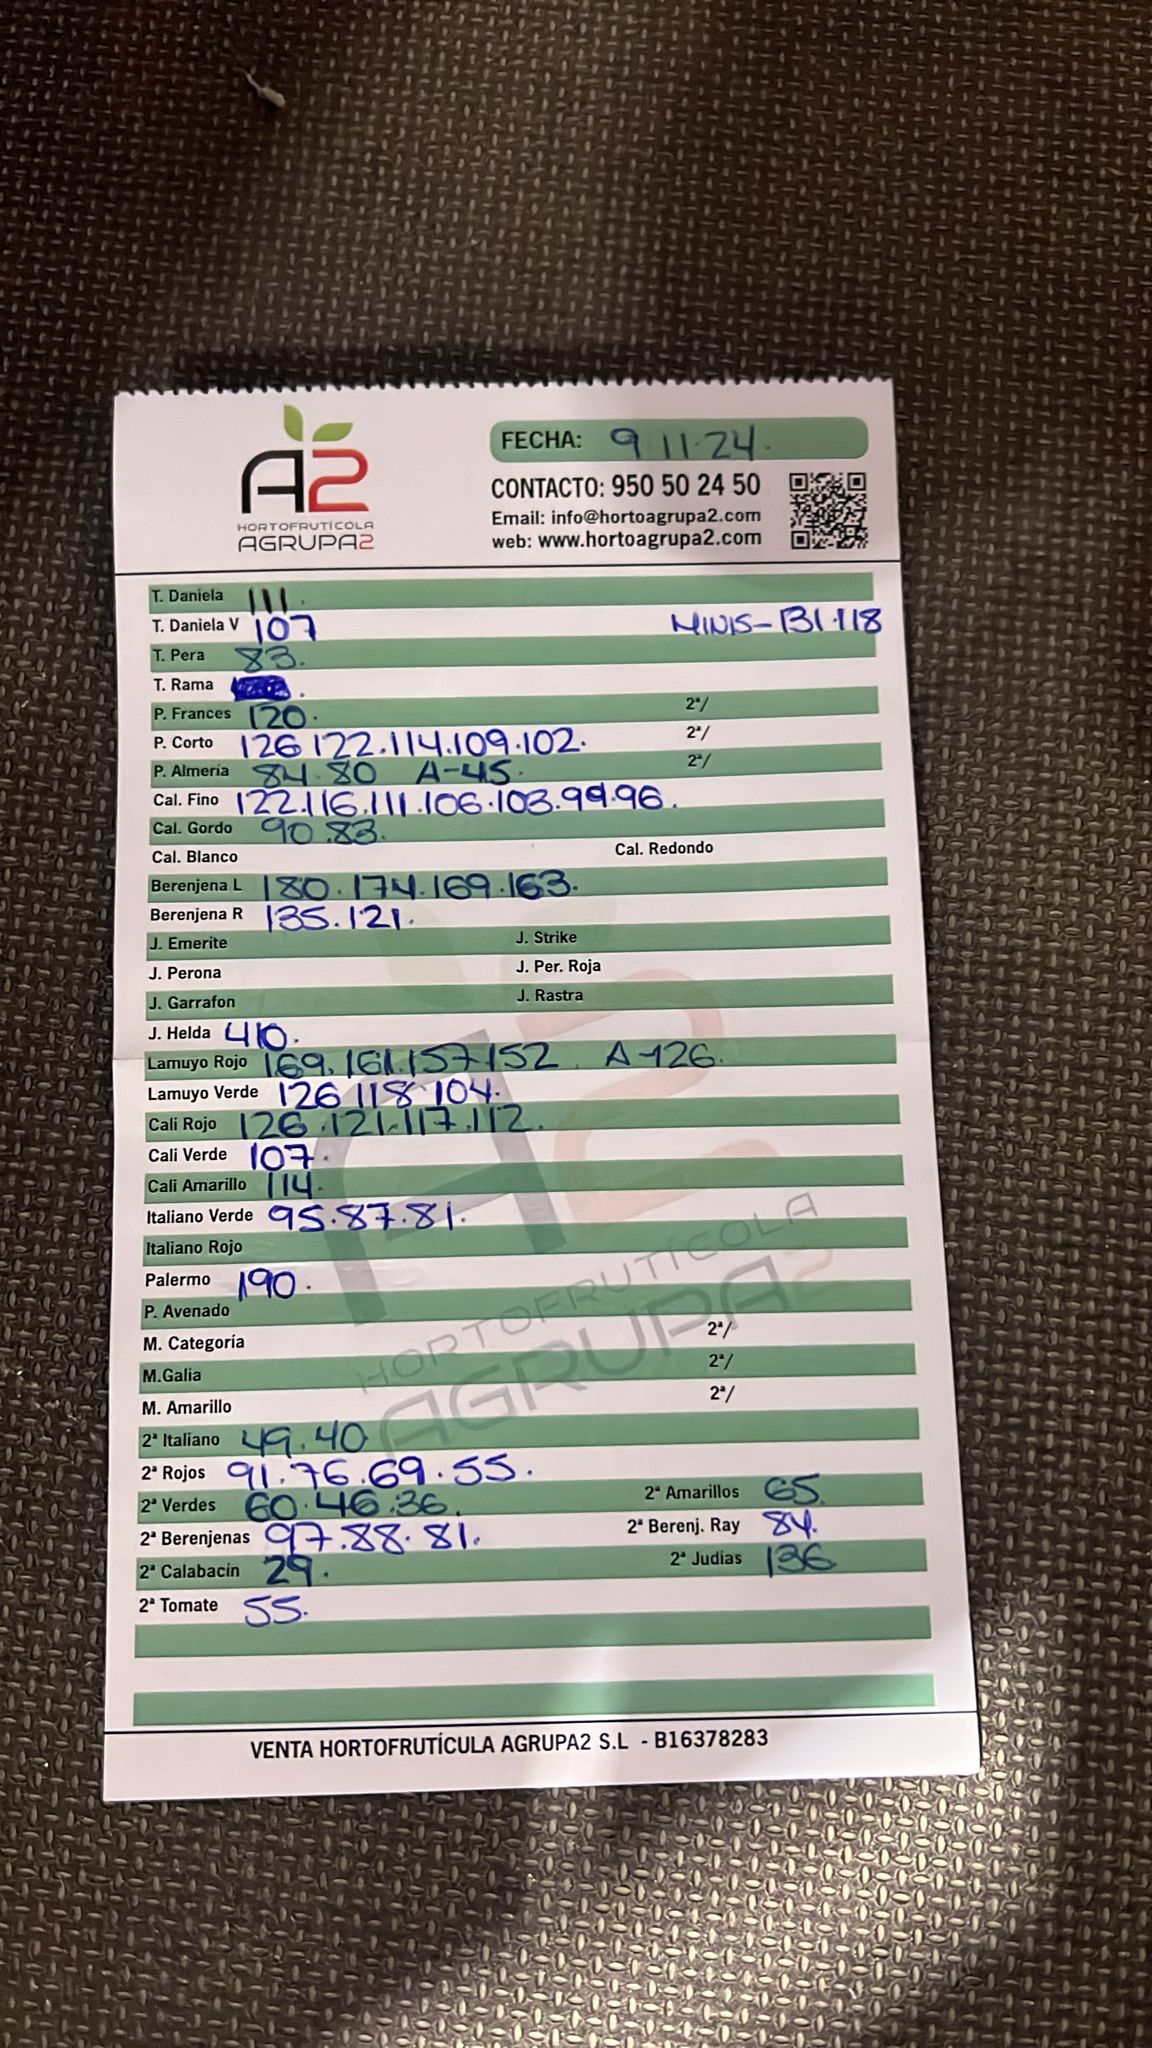 A2
HORTOFRUTÍCOLA
AGRUPA2
FECHA: 9.11.24.
CONTACTO: 950 50 24 50
Email: info@hortoagrupa2.com
web: www.hortoagrupa2.com
T. Daniela 111.
T. Daniela V 107 MINIS-131.118
T. Pera 83.
T. Rama
P. Frances 120. 2ª/
P. Corto 126 122.114.109.102. 2ª/
P. Almería 84.80 A-45. 2ª/
Cal. Fino 122.116.111.106.103.99.96.
Cal. Gordo 90.83.
Cal. Blanco Cal. Redondo
Berenjena L 180.174.169.163.
Berenjena R 135.121.
J. Emerite J. Strike
J. Perona J. Per. Roja
J. Garrafon J. Rastra
J. Helda 410.
Lamuyo Rojo 169.161.157.152 A-126.
Lamuyo Verde 126 118 104.
Cali Rojo 126.121.117.112.
Cali Verde 107.
Cali Amarillo 114.
Italiano Verde 95.87.81.
Italiano Rojo
Palermo 190.
P. Avenado
M. Categoría 2ª/
M.Galia 2ª/
M. Amarillo 2ª/
2ª Italiano 49.40
2ª Rojos 91.76.69.55.
2ª Verdes 60.46.36. 2ª Amarillos 65.
2ª Berenjenas 97.88.81. 2ª Berenj. Ray 84.
2ª Calabacín 29. 2ª Judías 136
2ª Tomate 55.
HORTOFRUTÍCOLA
AGRUPA2
VENTA HORTOFRUTÍCULA AGRUPA2 S.L - B16378283